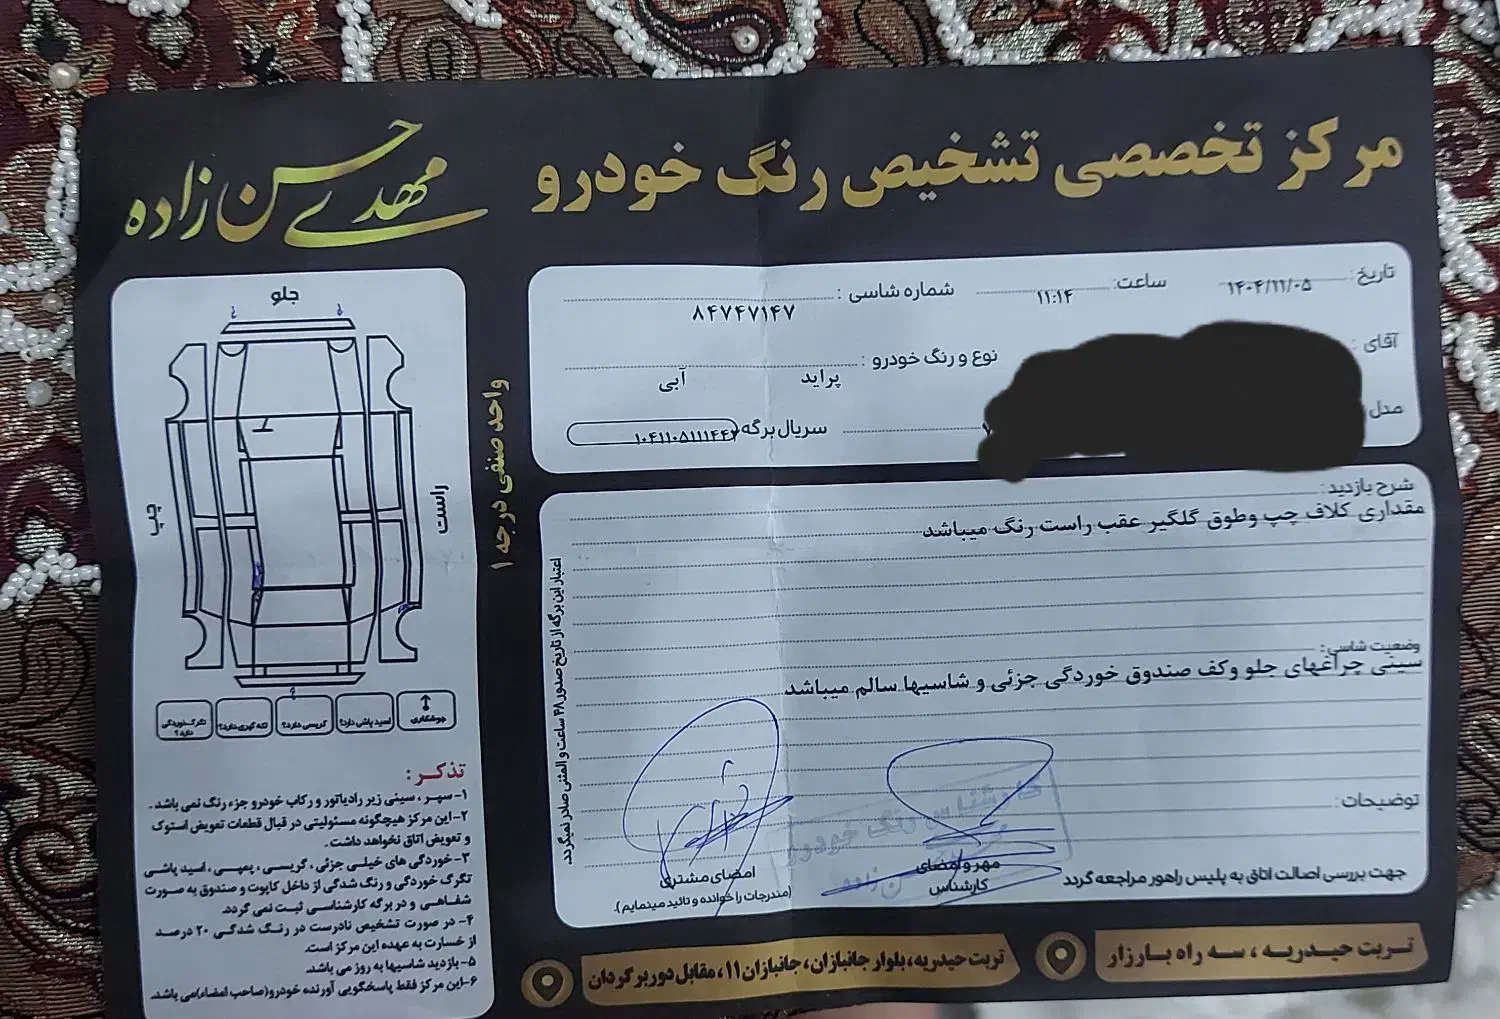 مرکز تخصصی تشخیص رنگ خودرو
مهدی حسن زاده
تاریخ: ۱۴۰۴/۱۱/۰۵ ساعت: ۱۱:۱۴ شماره شاسی: ۸۴۷۴۷۱۴۷
آقای: نوع و رنگ خودرو: پراید آبی
مدل سریال برگه
شرح بازدید:
مقداری کلاف چپ وطوق گلگیر عقب راست رنگ میباشد
وضعیت شاسی:
سینی چراغهای جلو وکف صندوق خوردگی جزئی و شاسیها سالم میباشد
توضیحات:
جهت بررسی اصالت اتاق به پلیس راهور مراجعه گردد
مهر و امضای
کارشناس
کارشناس رنگ خودرو
امضای مشتری
(مندرجات را خوانده و تائید مینمایم).
اعتبار این برگه از تاریخ صدور ۴۸ ساعت و المثنی صادر نمیگردد.
واحد صنفی درجه ۱
جلو
چپ
راست
جوشکاری
اسید پاشی دارد؟
گریسی دارد؟
لکه گیری دارد؟
تگرگ خوردگی دارد؟
تذکر:
۱- سپر، سینی زیر رادیاتور و رکاب خودرو جزء رنگ نمی باشد.
۲- این مرکز هیچگونه مسئولیتی در قبال قطعات تعویض استوک
و تعویض اتاق نخواهد داشت.
۳- خوردگی های خیلی جزئی، گریسی، پمپی، اسید پاشی
تگرگ خوردگی و رنگ شدگی از داخل کاپوت و صندوق به صورت
شفاهی و در برگه کارشناسی ثبت نمی گردد.
۴- در صورت تشخیص نادرست در رنگ شدگی ۲۰ درصد
از خسارت به عهده این مرکز است.
۵- بازدید شاسیها به روز می باشد.
۶- این مرکز فقط پاسخگویی آورنده خودرو (صاحب امضاء) می باشد.
تربت حیدریه، سه راه بارزار
تربت حیدریه، بلوار جانبازان، جانبازان ۱۱، مقابل دوربرگردان